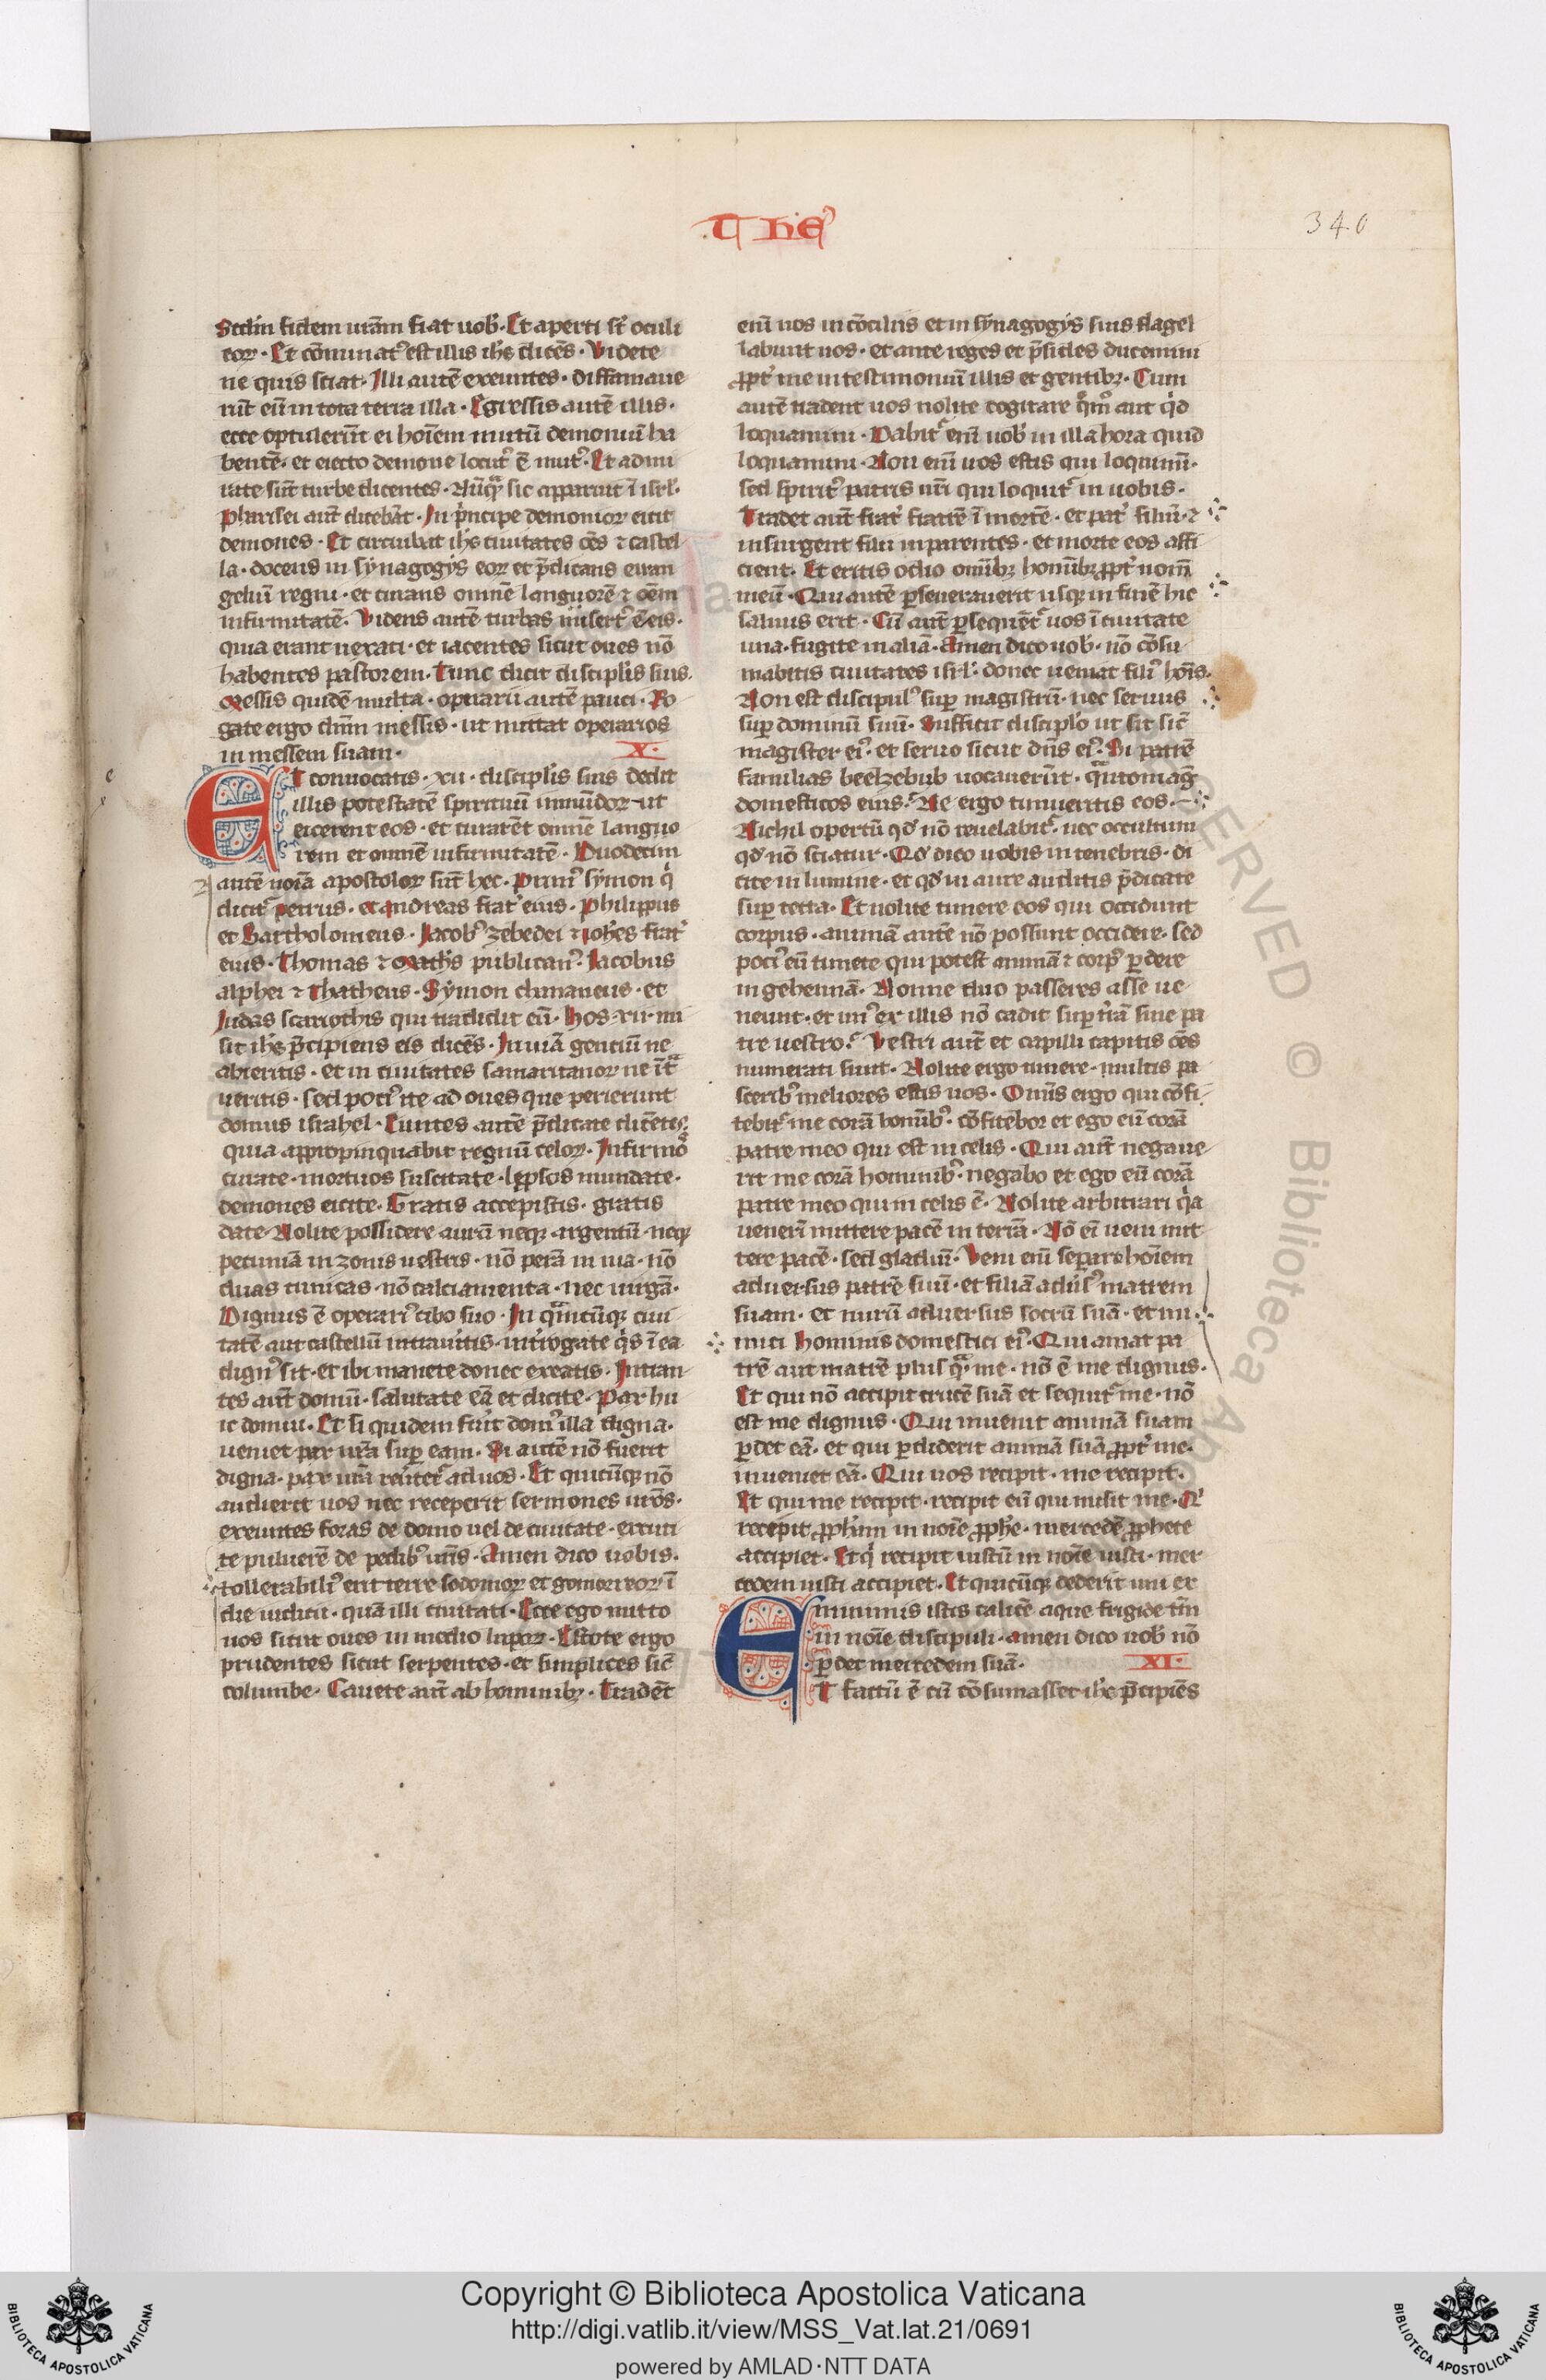 .T HEꝰ
340
Scdm̄ fidem ur̄am fiat uob̛. Et aperti st̄ oculi
eoꝝ. Et cōminatꝰ est illis ih̄s dicēs. Videte
ne quis sciat. Illi autē exeuntes. diffamaue
rūt eū in tota terra illa. Egressis autē illis.
ecce optulerūt ei hoīem mutū demoniū ha
bentē. et eiecto demone locutꝰ ē mutꝰ. Et admi
rate sūt turbe dicentes. Nūqᷓ sic apparuit ī isrl̄.
Pharisei aut̄ dicebāt. In pͥncipe demonioꝝ eicit
demones. Et circuibat ih̄s ciuitates oēs ⁊ castel
la. docens in synagogys eoꝝ et p̄dicans euan
geliū regni. et curans omnē languorē ⁊ oēm
infirmitatē. Videns autē turbas misertꝰ ē eis.
quia erant uexati. et iacentes sicut oues nō
habentes pastorem. Tunc dicit discipl̄is suis.
Messis quidē multa. opuarii autē pauci. Ro
gate ergo dn̄m messis. ut mittat operarios
in messem suam. X.
Et conuocatis. xii. discipl̄is suis dedit
illis potestatē spirituū inmūdoꝝ. ut
eicerent eos. et curarēt omnē languo
rem et omnē infirmitatē. Duodecim
autē noīa apostoloꝝ sūt hec. Primꝰ symon qͥ
dicit᷑ petrus. et andreas frat̛ eius. Philippus
et Bartholomeus. Jacobꝰ zebedei ⁊ ioh̄es frat̛
eius. Thomas ⁊ Math̄s publicanꝰ. Iacobus
alphei ⁊ Thatheus. Symon chananeus. et
Iudas scariothis qui tradidit eū. Hos. xii. mi
sit ih̄s p̄cipiens eis dicēs. In uiā gentiū ne
abieritis. et in ciuitates samaritanoꝝ ne īt̄ᷓ
ueritis. sed potiꝰ ite ad oues que perierunt
domus israhel. Euntes autē p̄dicate dicētes.
quia appropinquabit regnū celoꝝ. Infirmo͛
curate. mortuos suscitate. leprosos mundate.
demones eicite. Gratis accepistis. gratis
date. Nolite possidere aurū neqꝫ argentū. neqꝫ
pecuniā in zonis uestris. nō perā in uia. nō
duas tunicas. nō calciamenta. nec uirgā.
Dignus ē operariꝰ cibo suo. In qᷓmcūqꝫ ciui
tatē aut castellū intrauitis. int̛rogate qͥs ī ea
dignꝰ sit. et ibi manete donec exeatis. Intran
tes aut̄ domū. salutate eā et dicite. Pax hu
ic domui. Et si quidem fūit domꝰ illa digna.
ueniet pax ur̄a suꝑ eam. Si autē nō fuerit
digna. pax ur̄a reūtet᷑ ad uos. Et quicūqꝫ nō
audierit uos nec receperit sermones ur̄os.
exeuntes foras de domo uel de ciuitate. excuti
te puluerē de pedibꝰ ur̄is. Amen dico uobis.
tollerabiliꝰ erit terre sodomoꝝ et gomorreoꝝ ī
die iudicii. quā illi ciuitati. Ecce ego mitto
uos sicut oues in medio lupoꝝ. Estote ergo
prudentes sicut serpentes. et simplices sic̄
columbe. Cauete aut̄ ab hominibꝫ. Tradēt
enī uos in cōciliis et in synagogys suis flagel
labunt uos. et ante reges et p̄sides ducemini
ꝓpt̛ me in testimoniū illis et gentibꝫ. Cum
autē tradent uos nolite cogitare qͦmͦ aut qͥd
loquamini. Dabit᷑ enī uob̛ in illa hora quid
loquamini. Non enī uos estis qui loquimī.
sed spiritꝰ patris ur̄i qui loquit᷑ in uobis.
Tradet aut̄ frat̛ fratrē ī mortē. et pat̛ filiū. ⁊
insurgent filii in parentes. et morte eos affi
cient. Et eritis odio omībꝫ hominībꝫ ꝓpt̛ nom̄
meū. Qui autē ꝑseuerauerit usqꝫ in finē hic
saluus erit. Cū aut̄ ꝑsequēt᷑ uos ī ciuitate
una. fugite in aliā. Amen dico uob̛. nō cōsu
mabitis ciuitates isrl̄. donec ueniat filiꝰ hoīs.
Non est discipulꝰ suꝑ magistrū. nec seruus
suꝑ dominū suū. Sufficit discipl̄o ut sit sic̄
magister eiꝰ. et seruo sicut dn̄s eiꝰ. Si patrē
familias beelzebub uocauerūt. qᷓntomag̛
domesticos eius. Ne ergo timueritis eos.
Nichil opertū qd̛ nō reuelabit᷑. nec occultum
qd̛ nō sciatur. Qd̛ dico uobis in tenebris. di
cite in lumine. et qd̛ in aure auditis p̄dicate
suꝑ tecta. Et nolite timere eos qui occidunt
corpus. animā autē nō possunt occidere. sed
potiꝰ eū timete qui potest animā ⁊ corpꝰ ꝑdere
in gehennā. Nonne duo passeres asse ue
neunt. et unꝰ ex illis nō cadit suꝑ tr̄ā sine pa
tre uestro. Vestri aut̄ et capilli capitis oēs
numerati sunt. Nolite ergo timere. multis pa
sseribꝰ meliores estis uos. Omīs ergo qui cōfi
tebit᷑ me corā hominībꝰ. cōfitebor et ego eū corā
patre meo qui est in celis. Qui aut̄ negaue
rit me corā hominibꝰ. negabo et ego eū corā
patre meo qui in celis ē. Nolite arbitrari qͥa
uenerī mittere pacē in terrā. Nō ei̅ ueni mit
tere pacē. sed gladiū. Veni enī separare hoīem
aduersus patrē suū. et filiā adūsꝰ matrem
suam. et nurū aduersus socrū suā. et ini
mici hominis domestici eiꝰ. Qui amat pa
trē aut matrē plus qᷓ me. nō ē me dignus.
Et qui nō accipit crucē suā et sequit᷑ me. nō
est me dignus. Qui inuenit animā suam
ꝑdet eā. et qui ꝑdiderit animā suā ꝓpt̛ me.
inueniet eā. Qui uos recipit. me recipit.
Et qui me recipit. recipit eū qui misit me. Qͥ
recepit ꝓph̄am in noīe ꝓph̄e. mercedē ꝓphete
accipiet. Et qͥ recipit iustū in noīe iusti. mer
cedem iusti accipiet. Et quicūqꝫ dederit uni ex
minimis istis calicē aque frigide tm̄
in noīe discipuli. amen dico uob̛ nō
ꝑdet mercedem suā. XI.
Et factū ē cū cōsumasset ih̄c p̄cipiēs
Copyright © Biblioteca Apostolica Vaticana
http://digi.vatlib.it/view/MSS_Vat.lat.21/0691
powered by AMLAD·NTT DATA
BIBLIOTECA APOSTOLICA VATICANA
BIBLIOTECA APOSTOLICA VATICANA